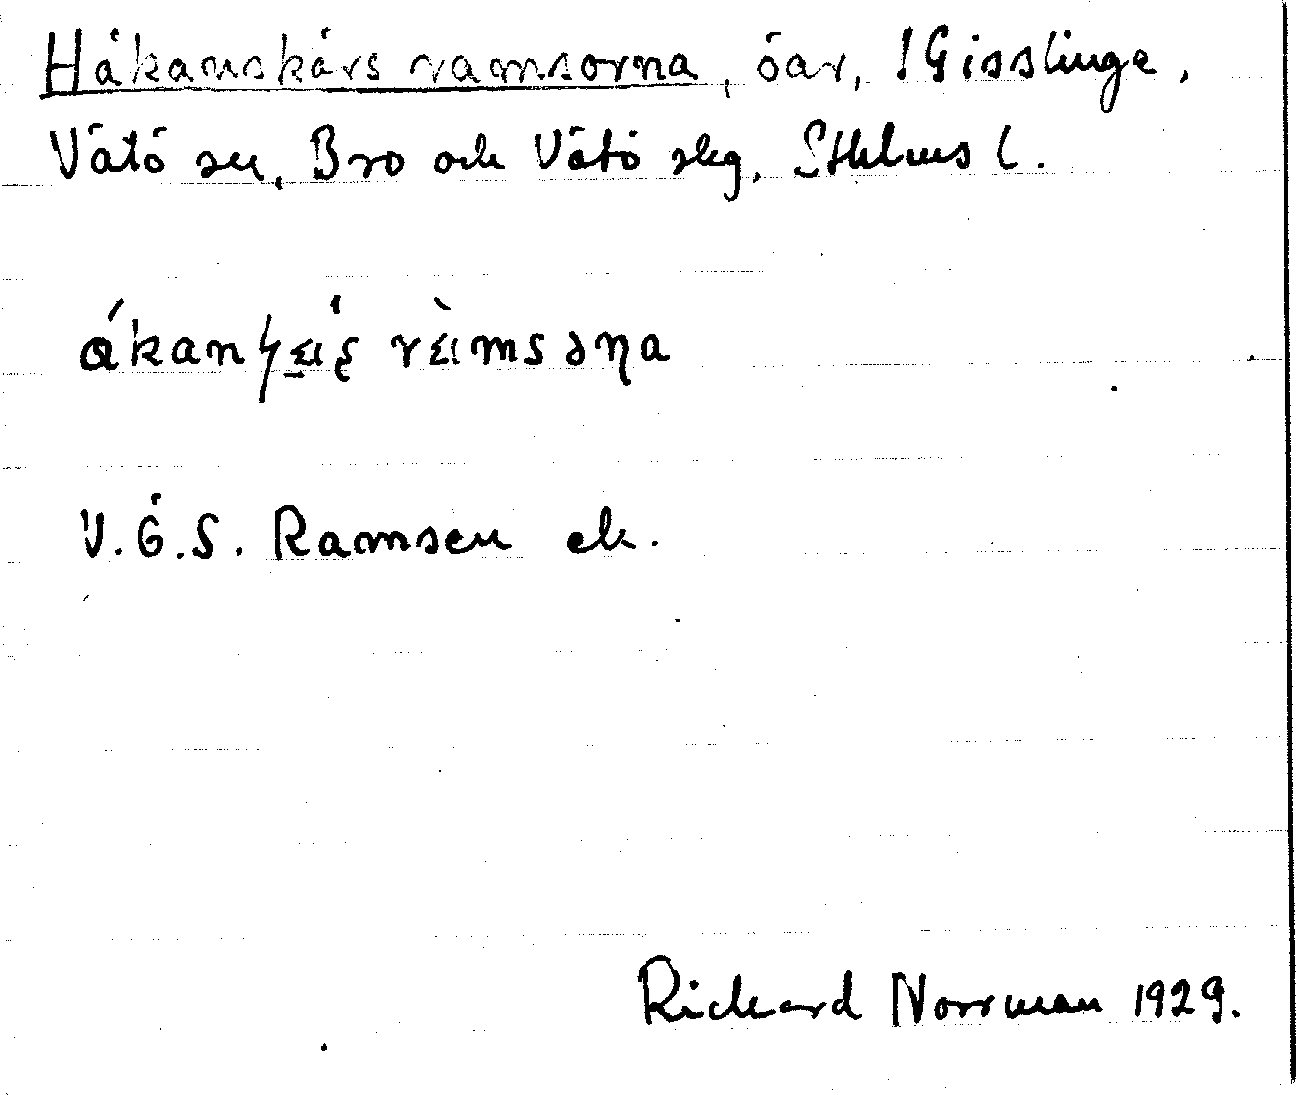 Håkanskärs ramsorna, öar, !Gisslinge,
Vätö sn, Bro och Vätö skg, Sthlms l.
V.Ö.S. Ramsen ek.
Richard Norrman 1929.